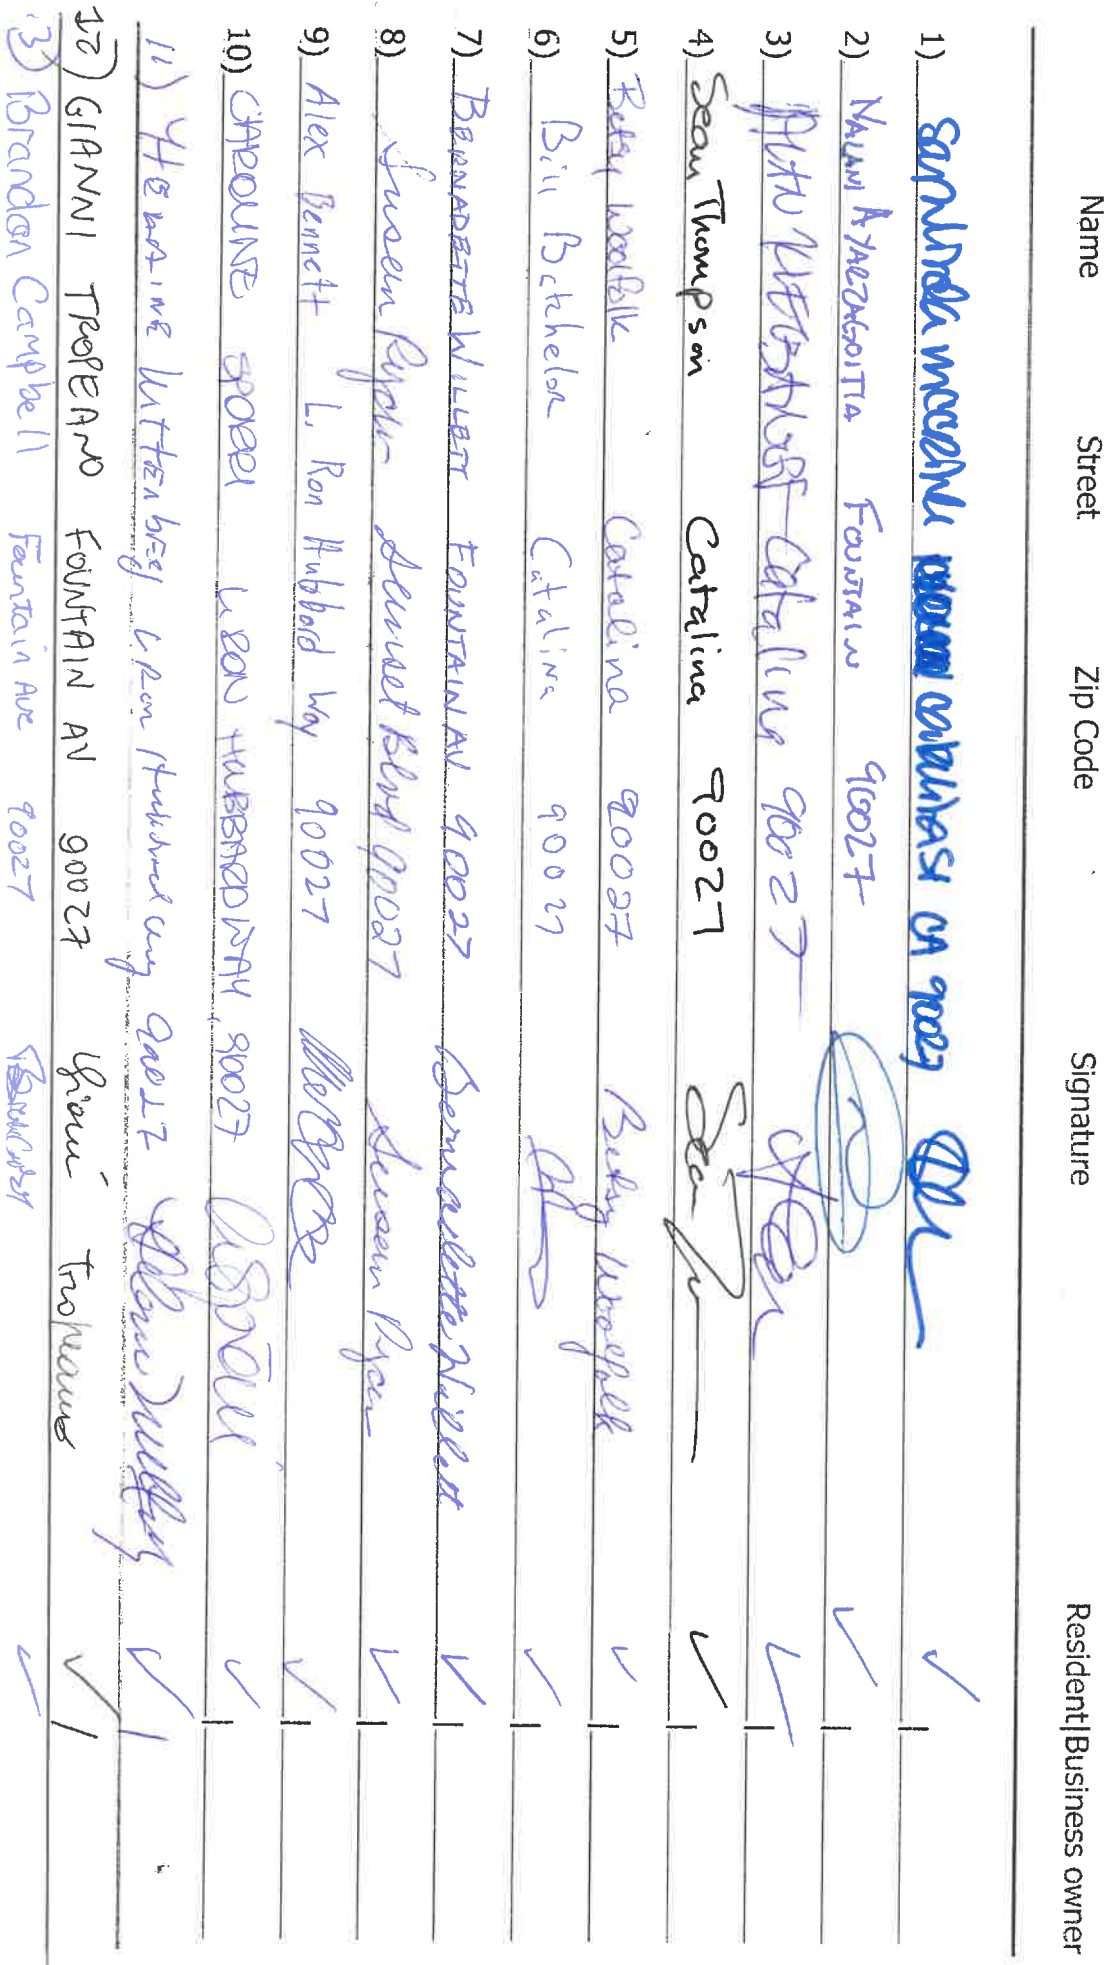 Name Street Zip Code Signature Resident|Business owner
1) CA 90027 ✓
2) NALANI AYARZAGOITIA FOUNTAIN 90027 ✓
3) Catalina 90027 ✓
4) Sean Thompson Catalina 90027 ✓
5) Betsy Woolfolk Catalina 90027 Betsy Woolfolk ✓
6) Bill Batchelor Catalina 90027 ✓
7) BERNADETTE WILLETT FOUNTAIN AV. 90027 Bernadette Willett ✓
8) Susan Pyson Sunset Blvd 90027 Susan ✓
9) Alex Bennett L. Ron Hubbard Way 90027 ✓
10) CAROLINE L. RON HUBBARD WAY, 90027 ✓
11) L Ron Hubbard Way 90027 ✓
12) GIANNI TROPEANO FOUNTAIN AV 90027 Gianni Tropeano ✓
13) Brandon Campbell Fountain Ave 90027 ✓